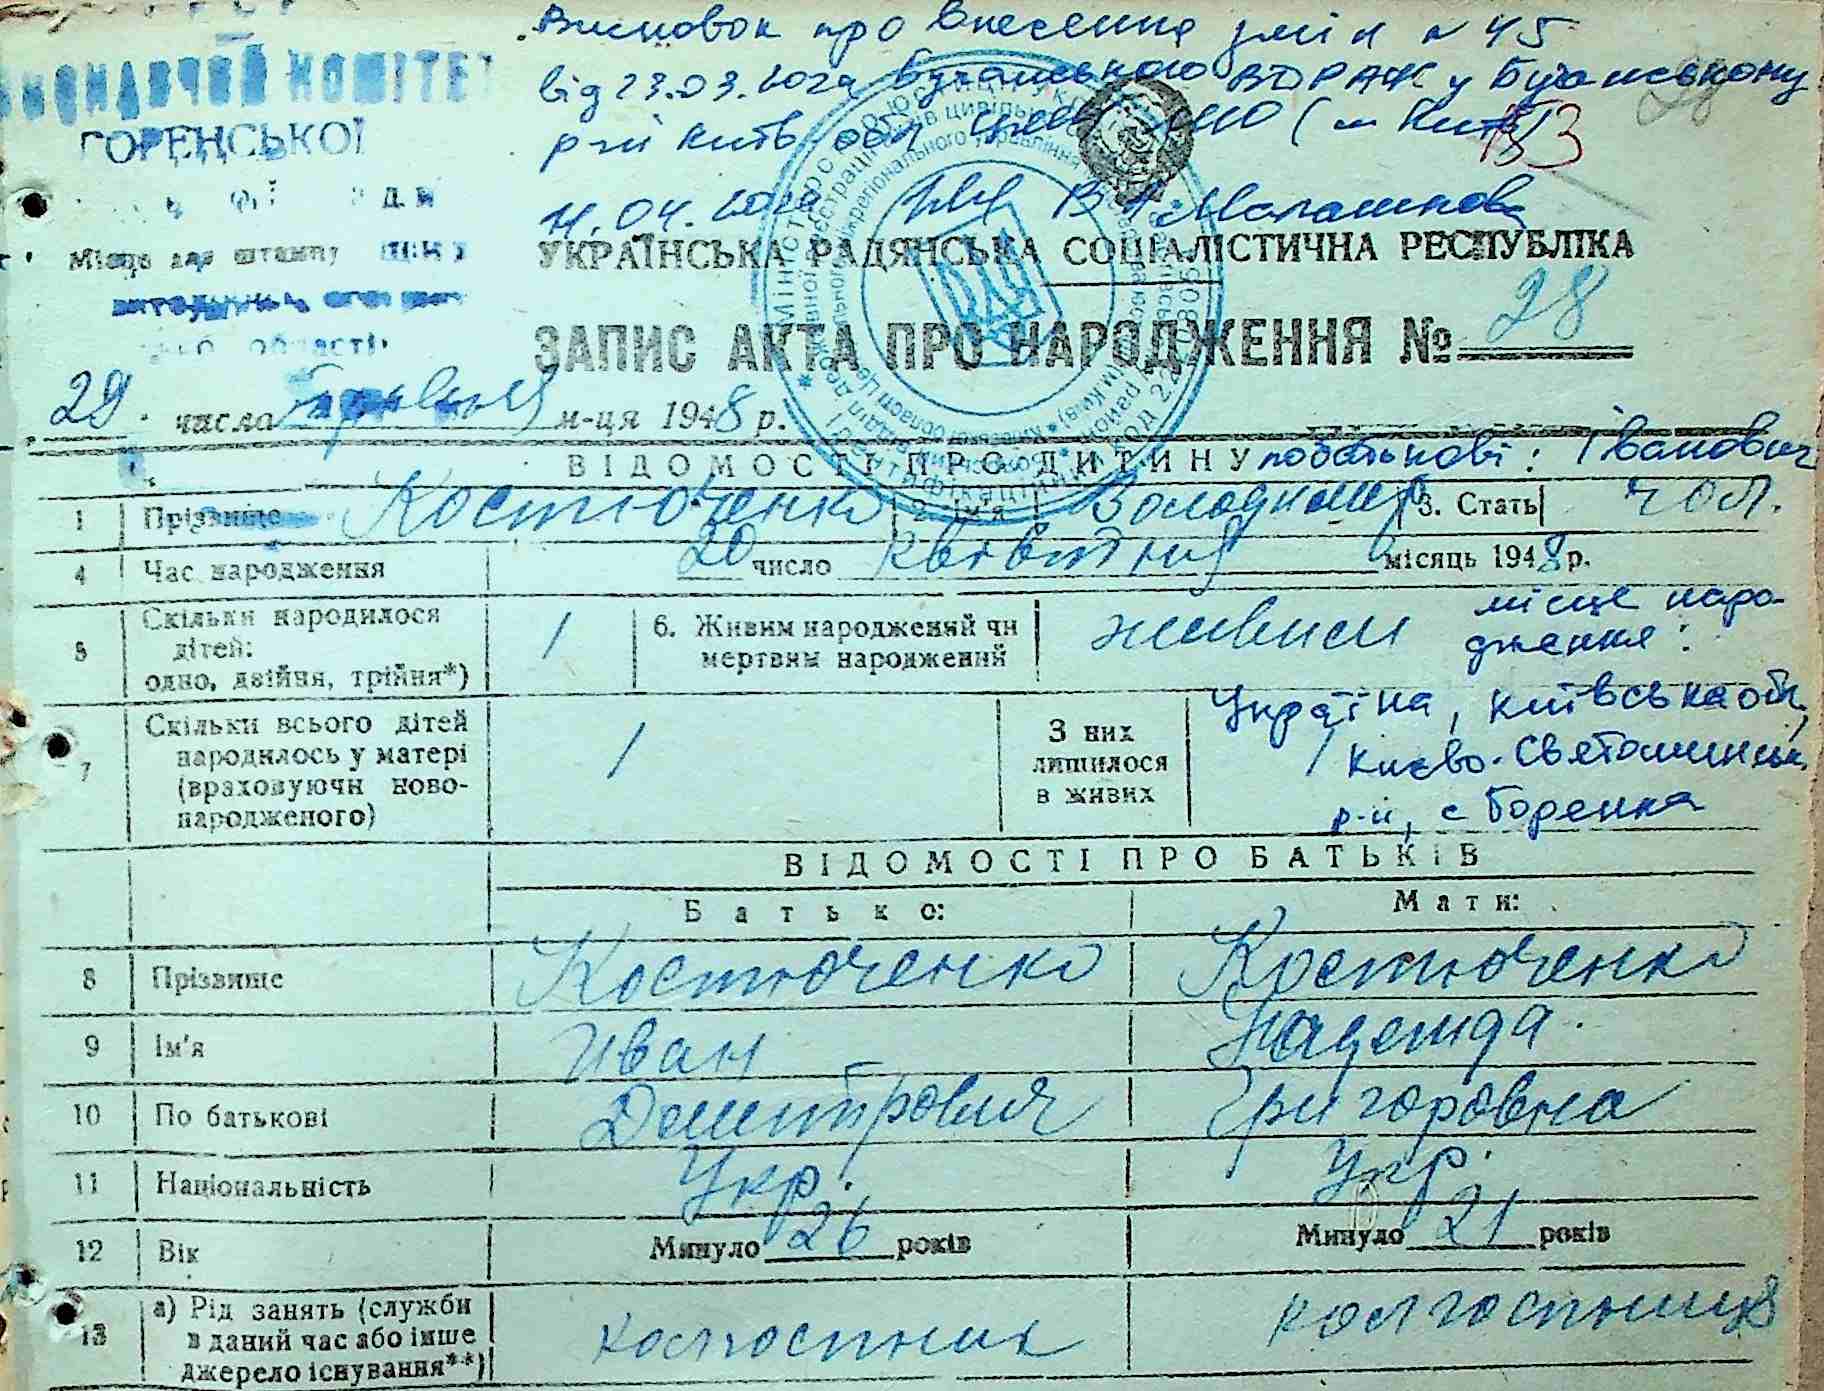 Висновок про внесення змін № 45
від 23.03.2024 Бучанського ВДРАЦС у Бучанському
р-ні Київ обл ЦМУ МЮ (м Київ)
ВИКОНАВЧИЙ КОМІТЕТ
ГОРЕНСЬКОЇ
11.04.2024 В
153
28
Місце для штампу
області
УКРАЇНСЬКА РАДЯНСЬКА СОЦІАЛІСТИЧНА РЕСПУБЛІКА
ЗАПИС АКТА ПРО НАРОДЖЕННЯ № 28
29 число травня м-ця 1948 р.
ВІДОМОСТІ ПРО ДИТИНУ по батькові: Іванович
1 Прізвище Костюченко 2. Ім'я Володимир 3. Стать чол.
4 Час народження 20 число квітня місяць 1948 р.
5 Скільки народилося дітей: одно, двійня, трійня*) 1 6. Живим народжений чи мертвим народжений живим
місце народження:
Україна, Київська обл,
Києво-Святошинськ.
р-н, с Горенка
7 Скільки всього дітей народилось у матері (враховуючи новонародженого) 1 З них лишилося в живих 1
ВІДОМОСТІ ПРО БАТЬКІВ
Батько: Мати:
8 Прізвище Костюченко Костюченко
9 Ім'я Иван Надежда
10 По батькові Дмитрович Григоровна
11 Національність Укр. Укр.
12 Вік Минуло 26 років Минуло 21 років
13 а) Рід занять (служби в даний час або інше джерело існування**) колгоспник колгоспниця